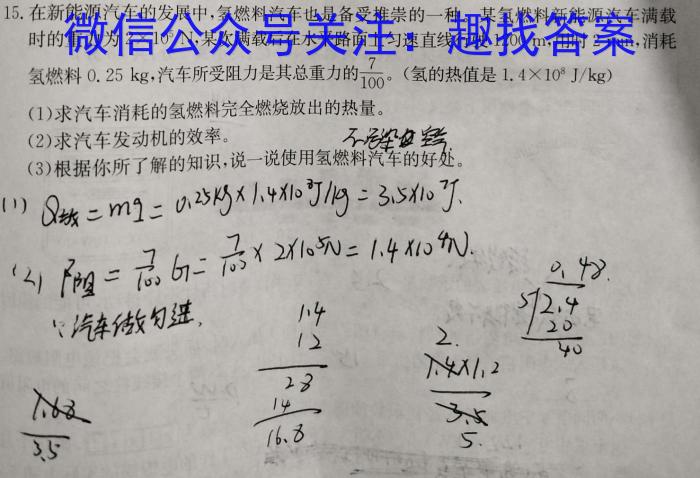 15. 在新能源汽车的发展中,氢燃料汽车也是备受推崇的一种。某氢燃料新能源汽车满载
微信公众号关注:趣找答案
消耗
氢燃料 0.25 kg,汽车所受阻力是其总重力的7/100。(氢的热值是 1.4×10⁸ J/kg)
(1)求汽车消耗的氢燃料完全燃烧放出的热量。
(2)求汽车发动机的效率。
不污染空气
(3)根据你所了解的知识,说一说使用氢燃料汽车的好处。
(1) Q放=mq=0.25kg×1.4×10⁸J/kg=3.5×10⁷J.
(2) F阻=7/100 G=7/100×2×10⁵N=1.4×10⁴N.
∵汽车做匀速,
0.48
5 2.4
20
40
1.4
12
28
14
16.8
2.
1.4×1.2
3.5
5.
1.68
3.5